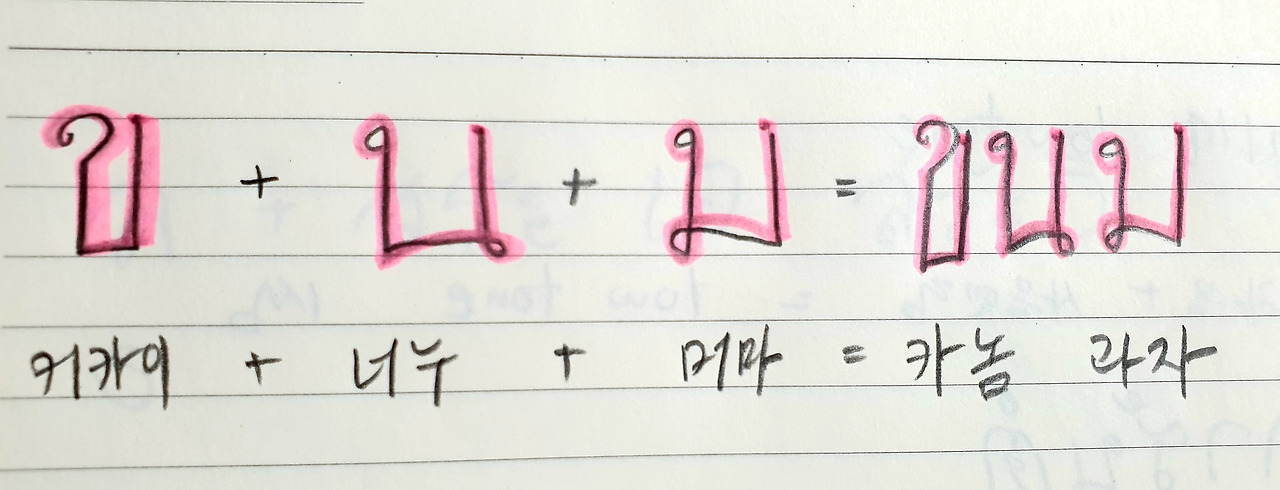 ข + น + ม = ขนม
커카이 + 너누 + 머마 = 카놈 과자